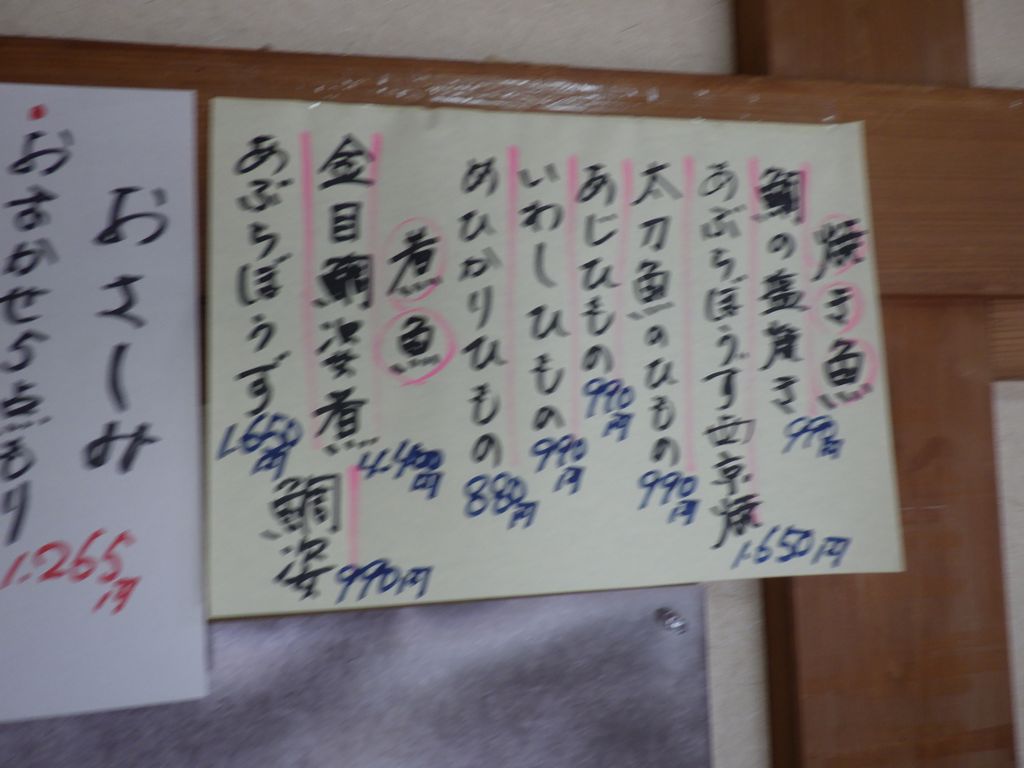 焼き魚
鯛の塩焼き 990円
あぶらぼうず西京焼 1.650円
太刀魚のひもの 990円
あじひもの 990円
いわしひもの 990円
めひかりひもの 880円
煮魚
金目鯛姿煮 4.400円
あぶらぼうず 1.650円
鯛姿 990円
おさしみ
おすかせ5点もり
1.265円